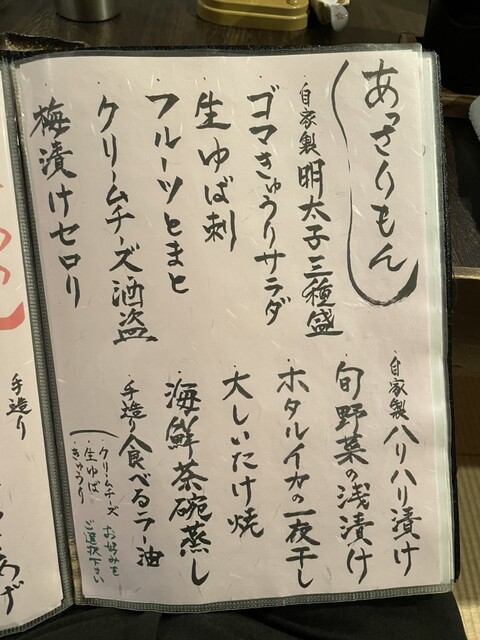 あっさりもん
・自家製明太子三種盛
・ゴマきゅうりサラダ
・生ゆば刺
・フルーツとまと
・クリームチーズ酒盗
・梅漬けセロリ
・自家製ハリハリ漬け
・旬野菜の浅漬け
・ホタルイカの一夜干し
・大しいたけ焼
・海鮮茶碗蒸し
・手造り食べるラー油
・クリームチーズ
・生ゆば
・きゅうり
お好みを
ご選択下さい
手造り